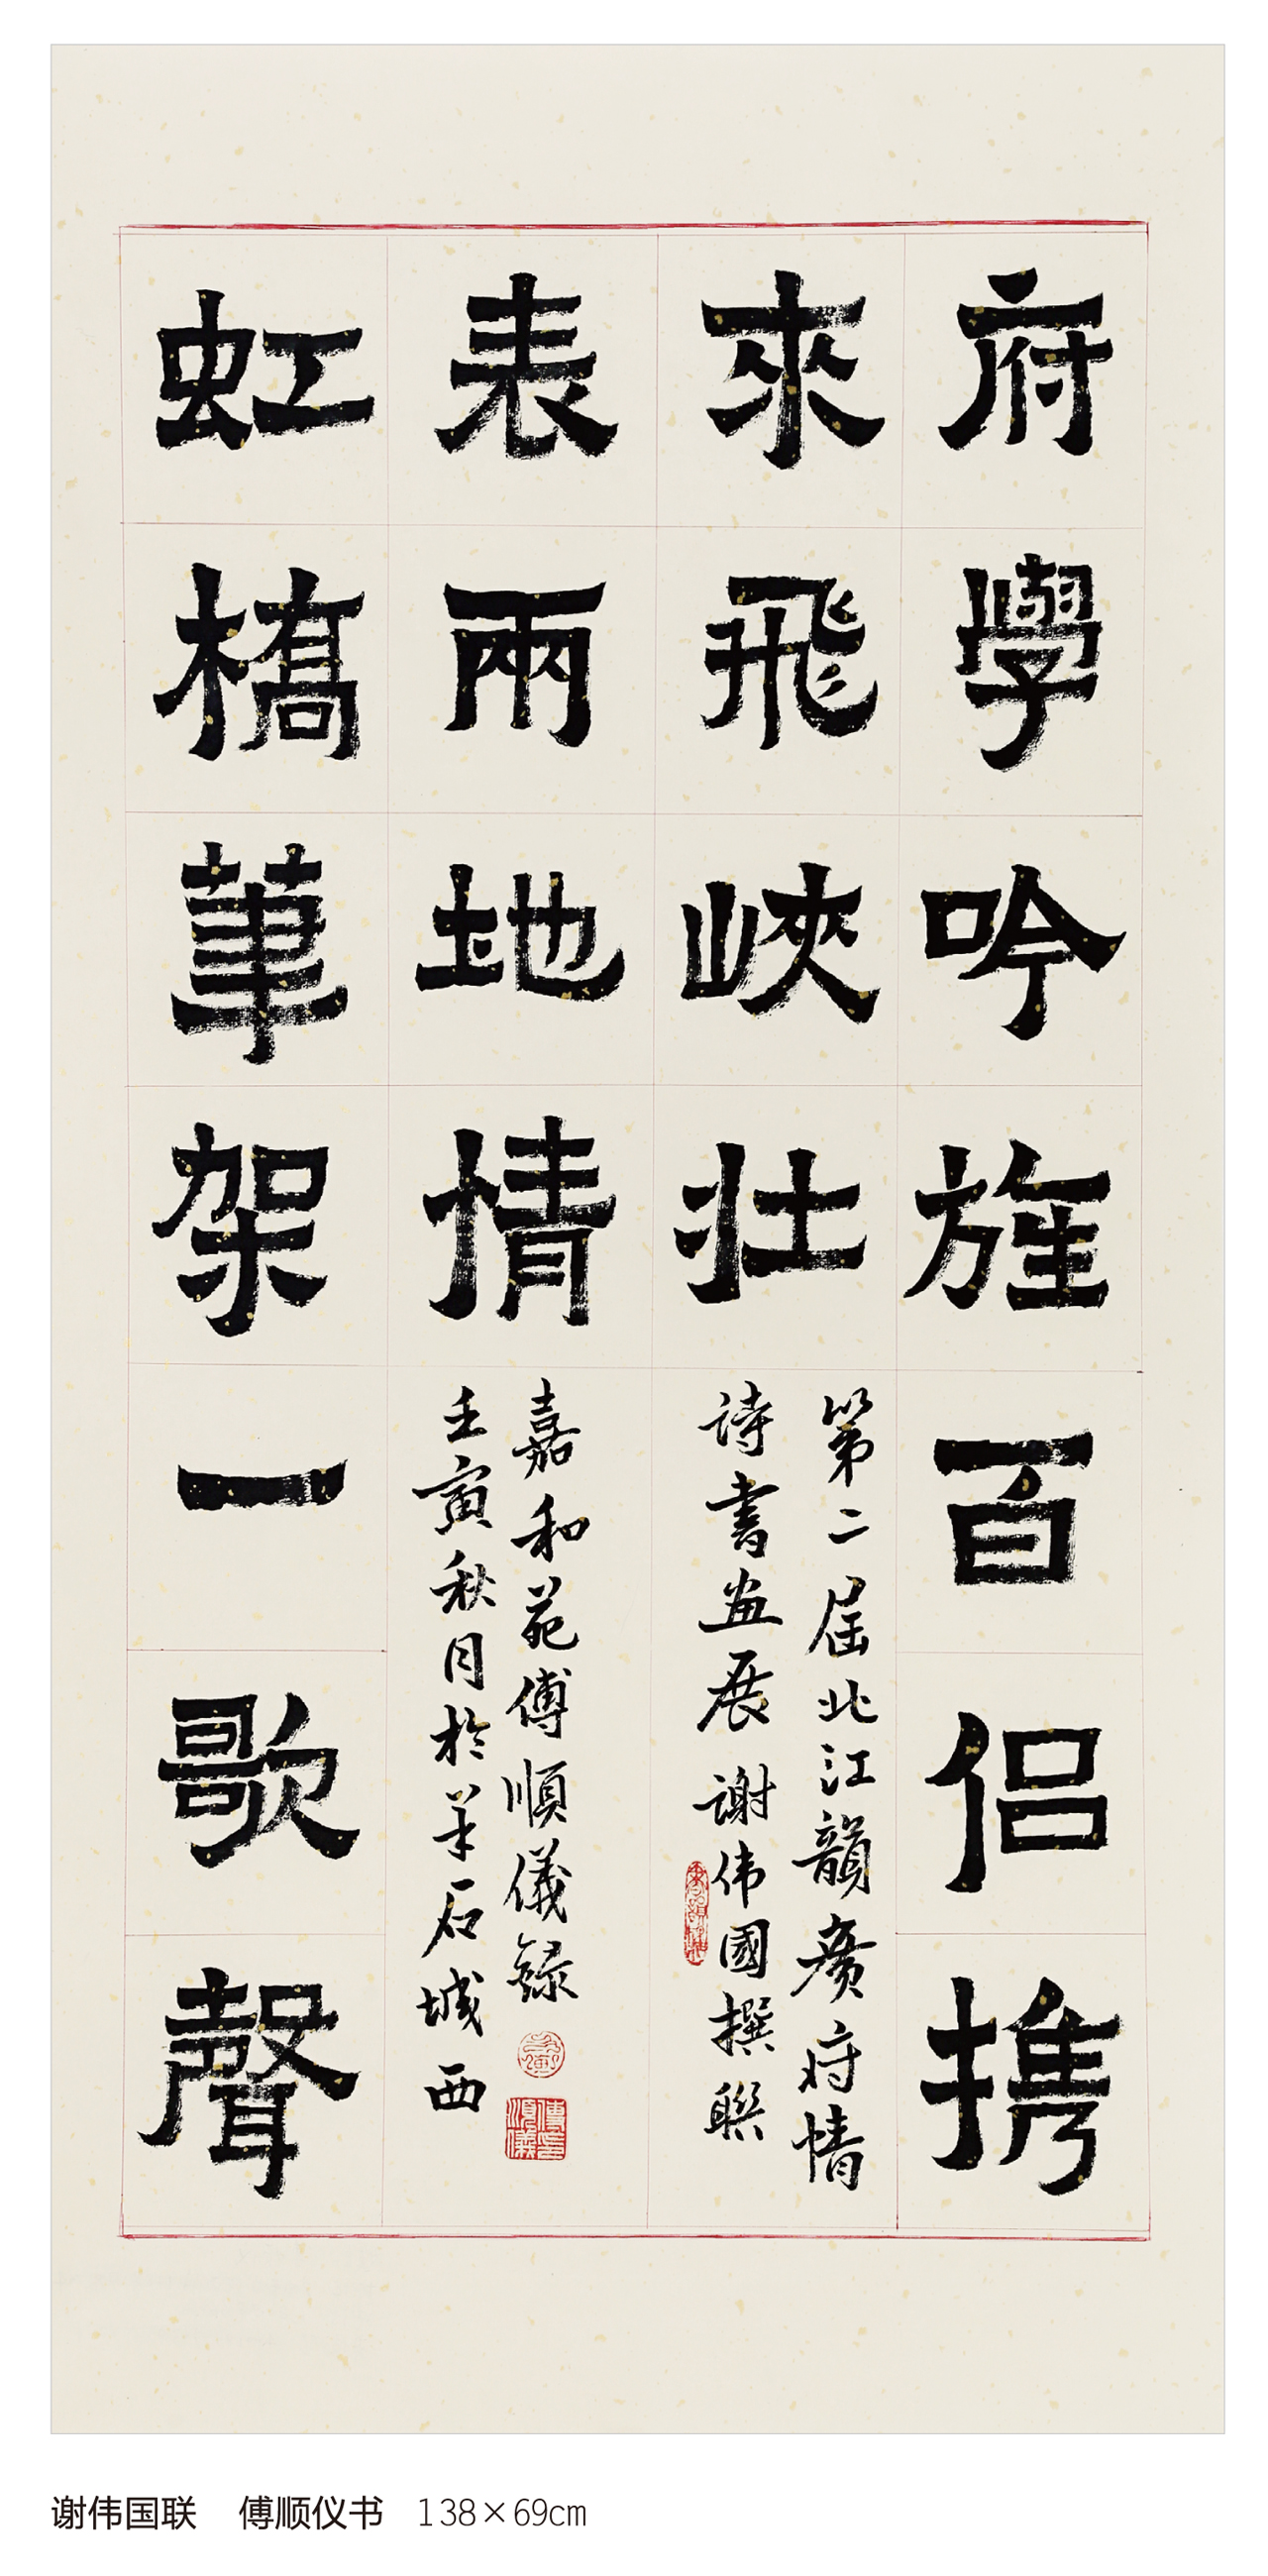 府學吟旌百侣携
來飛峽壯
虹橋筆架一歌聲
表兩地情
第二屆北江韻廣府情
詩書画展 謝伟國撰聯
嘉和苑傅順儀録
壬寅秋月於羊石城西
傅印順儀
谢伟国联 傅顺仪书 138×69cm